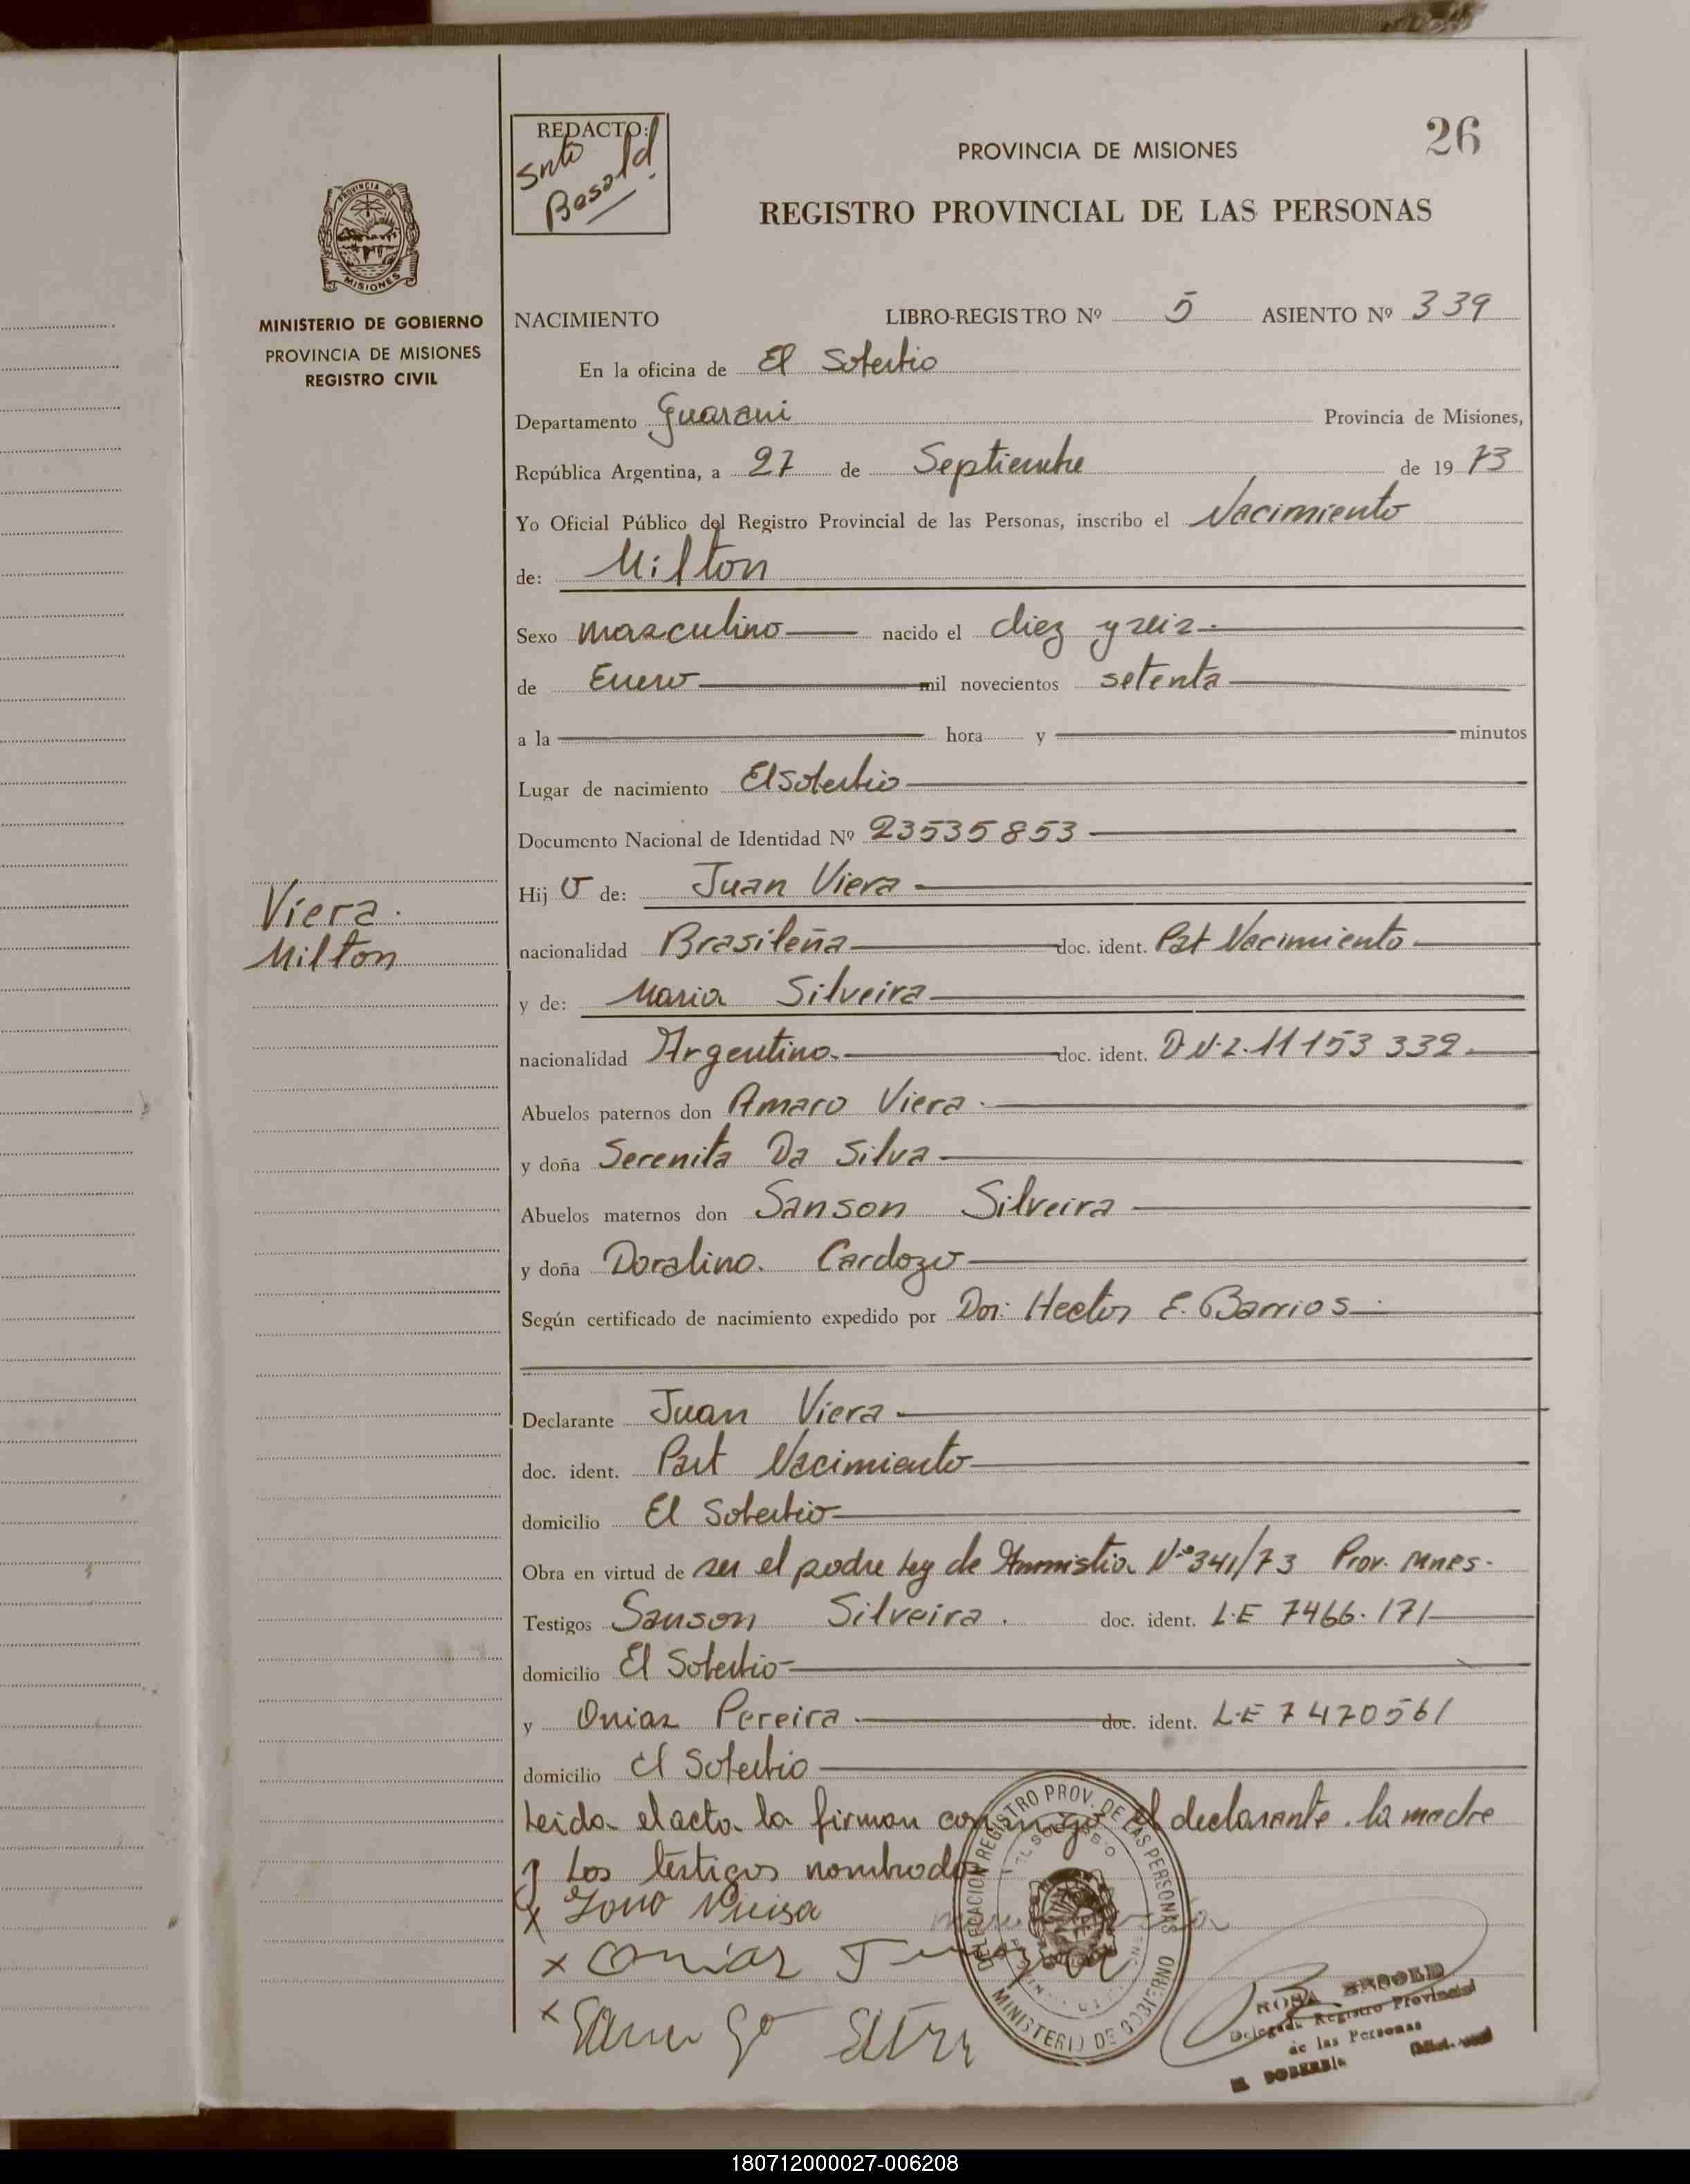 26
REDACTO:
PROVINCIA DE MISIONES
REGISTRO PROVINCIAL DE LAS PERSONAS
PROVINCIA DE
MISIONES
MINISTERIO DE GOBIERNO
PROVINCIA DE MISIONES
REGISTRO CIVIL
NACIMIENTO LIBRO-REGISTRO Nº 5 ASIENTO Nº 339
En la oficina de El Soberbio
Departamento Guarani Provincia de Misiones,
República Argentina, a 27 de Septiembre de 1973
Yo Oficial Público del Registro Provincial de las Personas, inscribo el Nacimiento
de: Milton
Sexo masculino nacido el diez y seis
de Enero mil novecientos setenta
a la hora y minutos
Lugar de nacimiento El Soberbio
Documento Nacional de Identidad Nº 23535853
Hijo de: Juan Viera
Viera.
Milton
nacionalidad Brasileña doc. ident. Pat Nacimiento
y de: Maria Silveira
nacionalidad Argentina doc. ident. D.N.I. 11153 339
Abuelos paternos don Amaro Viera
y doña Serenita Da Silva
Abuelos maternos don Sanson Silveira
y doña Doralina Cardozo
Según certificado de nacimiento expedido por Don: Hector E. Barrios
Declarante Juan Viera
doc. ident. Part Nacimiento
domicilio El Soberbio
Obra en virtud de ser el padre Ley de Ammistia Nº 341/73 Prov. Mnes.
Testigos Sanson Silveira. doc. ident. L.E 7466.171
domicilio El Soberbio
y Onias Pereira doc. ident. L.E 7470561
domicilio El Soberbio
Leida el acta la firman conmigo el declarante. la madre
y Los testigos nombrados
DELEGACION REGISTRO PROV. DE LAS PERSONAS
EL SOBERBIO
MINISTERIO DE GOBIERNO
x
x Onias
x
ROSA BASOLD
Delegada Registro Provincial
de las Personas
EL SOBERBIO
180712000027-006208